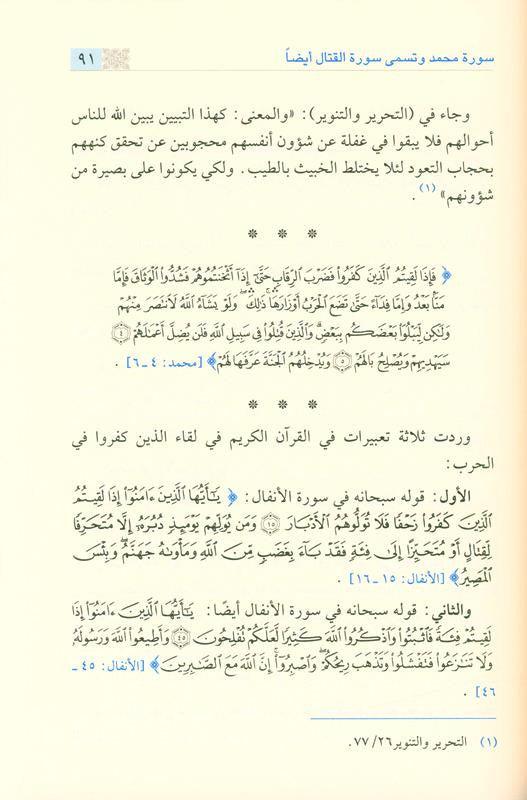 سورة محمد وتسمى سورة القتال أيضاً ٩١
وجاء في (التحرير والتنوير): «والمعنى: كهذا التبيين يبين الله للناس
أحوالهم فلا يبقوا في غفلة عن شؤون أنفسهم محجوبين عن تحقق كنههم
بحجاب التعود لئلا يختلط الخبيث بالطيب. ولكي يكونوا على بصيرة من
شؤونهم» (١).
* * *
﴿ فَإِذَا لَقِيتُمُ الَّذِينَ كَفَرُوا فَضَرْبَ الرِّقَابِ حَتَّىٰٓ إِذَآ أَثْخَنتُمُوهُمْ فَشُدُّوا الْوَثَاقَ فَإِمَّا
مَنًّۢا بَعْدُ وَإِمَّا فِدَآءً حَتَّىٰ تَضَعَ الْحَرْبُ أَوْزَارَهَا ۚ ذَٰلِكَ ۖ وَلَوْ يَشَآءُ اللَّهُ لَانتَصَرَ مِنْهُمْ
وَلَٰكِن لِّيَبْلُوَا۟ بَعْضَكُم بِبَعْضٍ ۗ وَالَّذِينَ قُتِلُوا فِي سَبِيلِ اللَّهِ فَلَن يُضِلَّ أَعْمَالَهُمْ ﴿٤﴾
سَيَهْدِيهِمْ وَيُصْلِحُ بَالَهُمْ ﴿٥﴾ وَيُدْخِلُهُمُ الْجَنَّةَ عَرَّفَهَا لَهُمْ ﴾ [محمد: ٤ ـ ٦] .
* * *
وردت ثلاثة تعبيرات في القرآن الكريم في لقاء الذين كفروا في
الحرب:
الأول: قوله سبحانه في سورة الأنفال: ﴿ يَٰٓأَيُّهَا الَّذِينَ ءَامَنُوٓا إِذَا لَقِيتُمُ
الَّذِينَ كَفَرُوا زَحْفًا فَلَا تُوَلُّوهُمُ الْأَدْبَارَ ﴿١٥﴾ وَمَن يُوَلِّهِمْ يَوْمَئِذٍ دُبُرَهُۥٓ إِلَّا مُتَحَرِّفًا
لِّقِتَالٍ أَوْ مُتَحَيِّزًا إِلَىٰ فِئَةٍ فَقَدْ بَآءَ بِغَضَبٍ مِّنَ اللَّهِ وَمَأْوَىٰهُ جَهَنَّمُ ۖ وَبِئْسَ
الْمَصِيرُ ﴾ [الأنفال: ١٥ ـ ١٦] .
والثاني: قوله سبحانه في سورة الأنفال أيضًا: يَٰٓأَيُّهَا الَّذِينَ ءَامَنُوٓا إِذَا
لَقِيتُمْ فِئَةً فَاثْبُتُوا وَاذْكُرُوا اللَّهَ كَثِيرًا لَّعَلَّكُمْ تُفْلِحُونَ ﴿٤٥﴾ وَأَطِيعُوا اللَّهَ وَرَسُولَهُۥ
وَلَا تَنَازَعُوا فَتَفْشَلُوا وَتَذْهَبَ رِيحُكُمْ ۖ وَاصْبِرُوٓا ۚ إِنَّ اللَّهَ مَعَ الصَّابِرِينَ ﴾ [الأنفال: ٤٥ ـ
٤٦] .
(١) التحرير والتنوير ٢٦/ ٧٧.